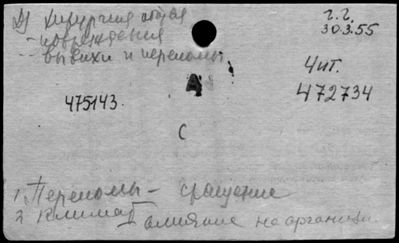 2) Хирургия общая г.г.
- повреждения 30.3.55
- вывихи и переломы
Чит.
А
475143. 472734
С
1. Переломы - сращение
2. Климат - влияние на организм.